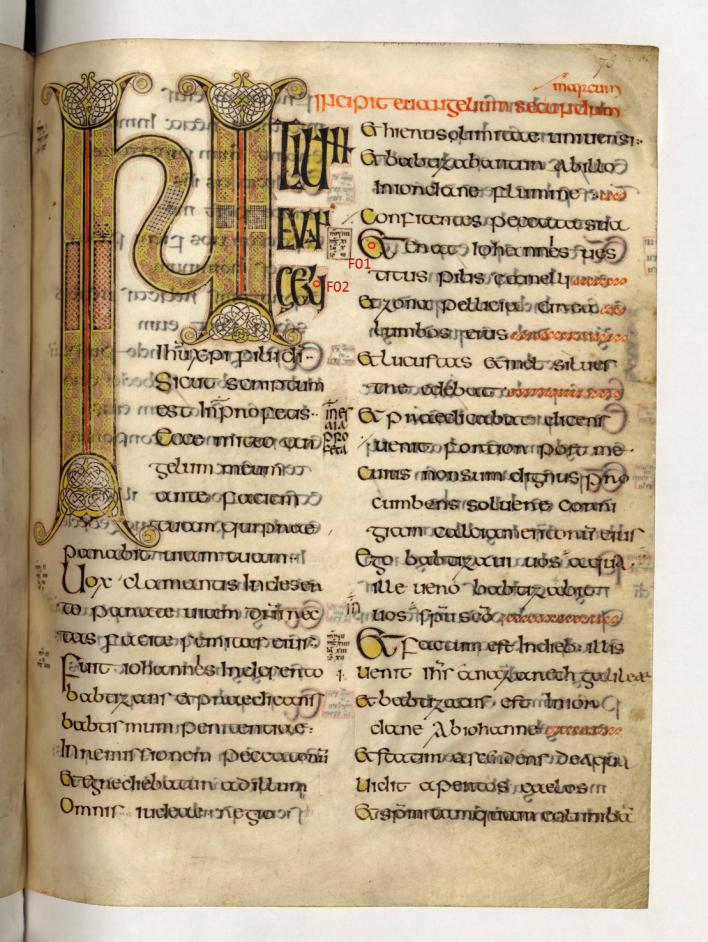 marcum
Incipit euangelium secundum
INITIUM
EVAN
GELII
F02
ihu xpi filii di
Sicut scriptum
est In profetis
Ecce mitto an
gelum meum
ante faciem
tuam qui prae
parabit uiam tuam
Uox clamantis In deser
to parate uiam dni rec
tas facite semitas eius
Fuit iohannes In deserto
babtizans et praedicans
babtismum penitentiae
In remissionem peccatorum
Et egrediebatur ad illum
Omnis iudeae regio
Et hierusolimitae uniuersi
Et babtizabantur Ab illo
In iordane flumine
Confitentes peccata sua
Et erat Iohannes ues
F01
titus pilis camelli
Et zona pellicia circa
lumbos eius
Et lucustas et mel silues
tre edebat
Et praedicabat dicens
uenit fortior post me
cuius non sum dignus pro
cumbens soluere corri
giam calciamentorum eius
Ego babtizaui uos aqua
ille uero babtizabit
uos spu sco
Et factum est In dieb illis
uenit ihs a nazareth galileae
Et babtizatus est In ior
dane Ab iohanne
Et statim ascendens de aqua
Uidit apertos caelos
Et spm tamquam columba